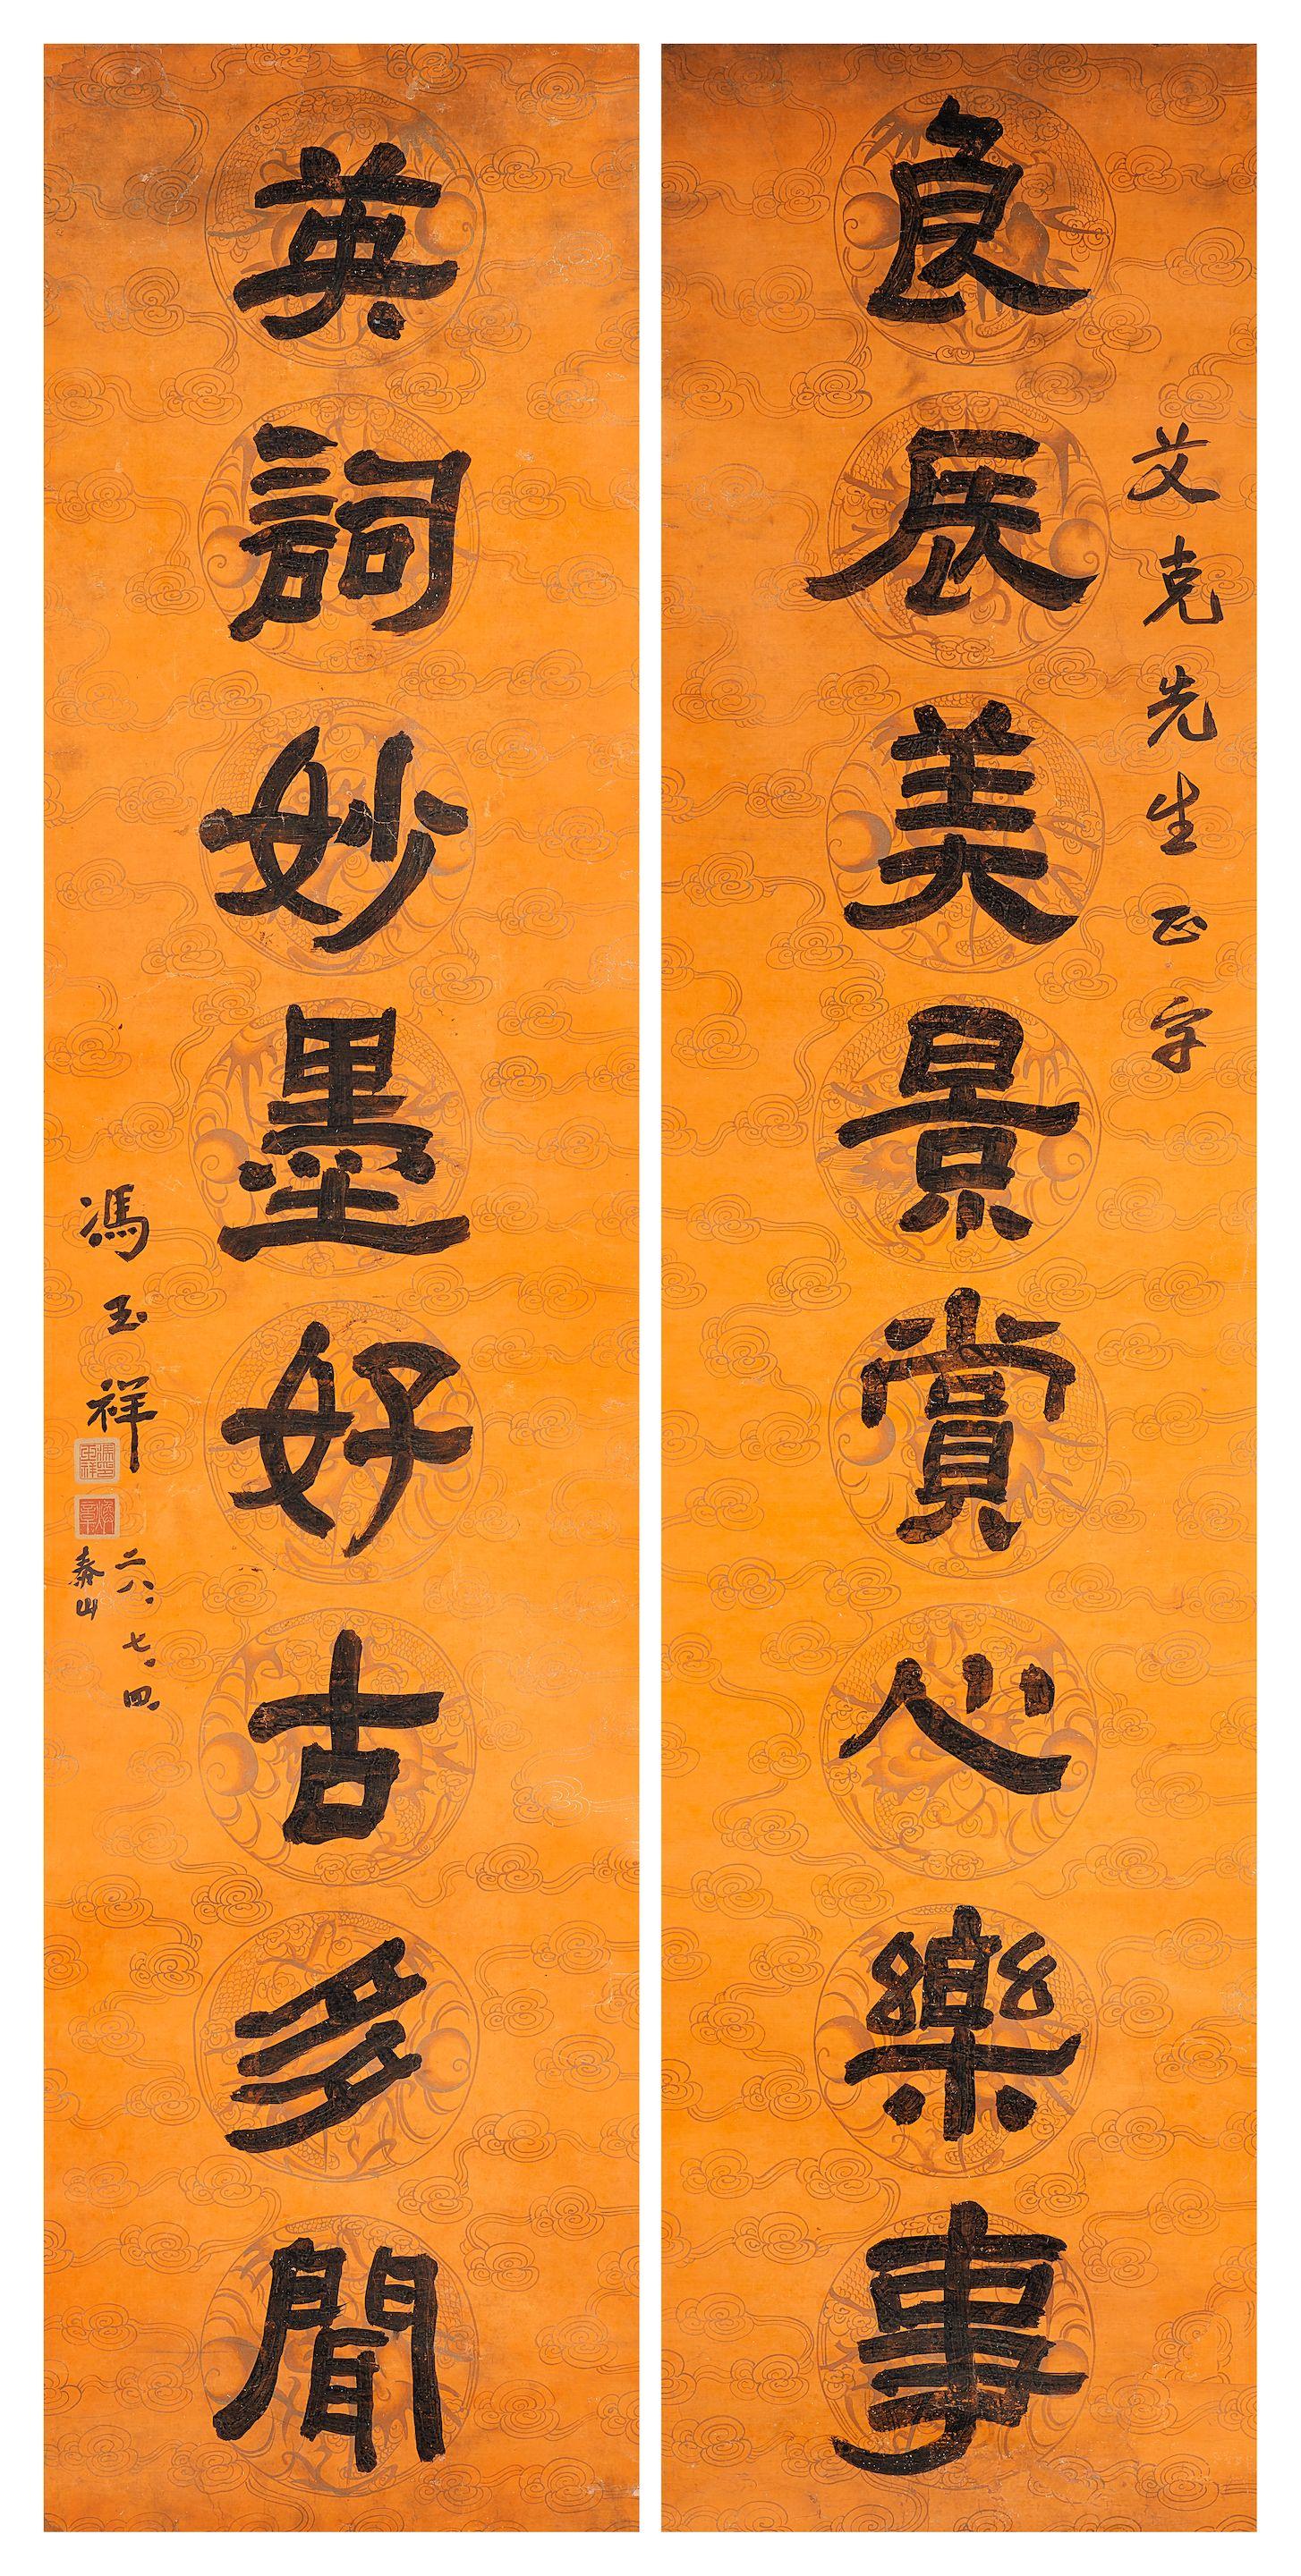 艾克先生正字
良辰美景賞心樂事
英詞妙墨好古多聞
馮玉祥
二八、七、四、
泰山